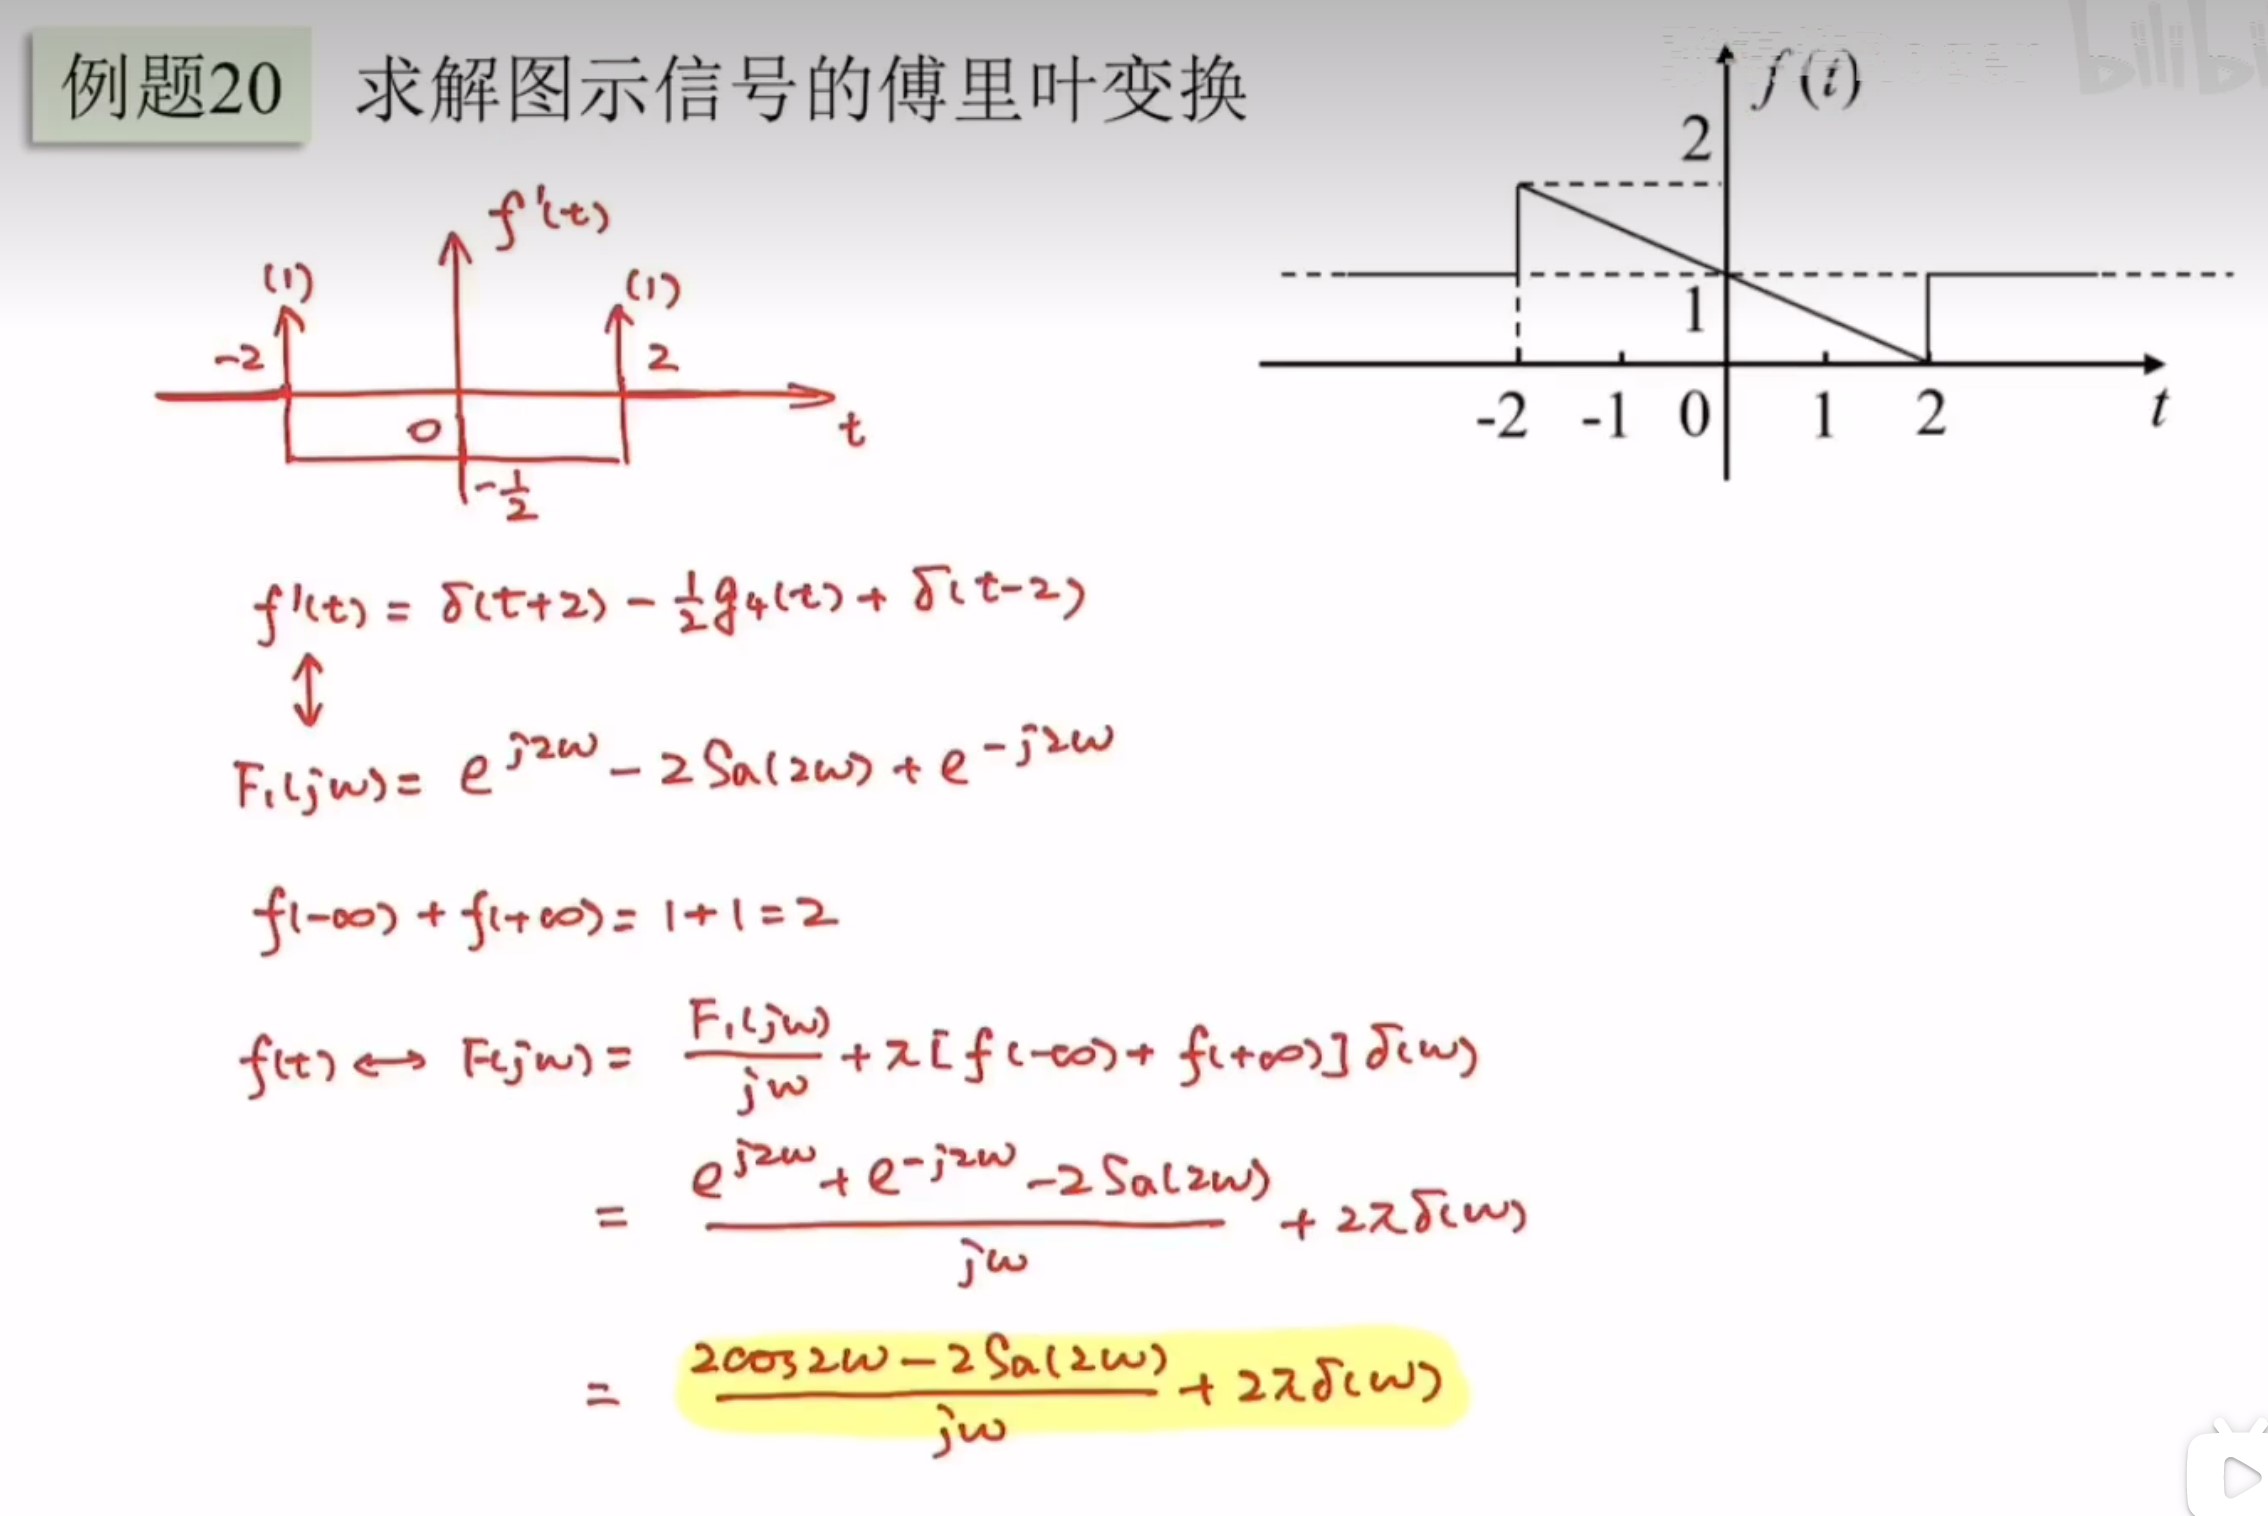 例题20 求解图示信号的傅里叶变换
bilibili
f(t)
2
1
-2 -1 0 1 2 t
f'(t)
(1) (1)
-2 2
0 t
-1/2
f'(t) = δ(t+2) - 1/2 g₄(t) + δ(t-2)
↕
F₁(jω) = e^{j2ω} - 2Sa(2ω) + e^{-j2ω}
f(-∞) + f(+∞) = 1+1=2
f(t) ↔ F(jω) = F₁(jω)/jω + π[f(-∞) + f(+∞)]δ(ω)
= (e^{j2ω} + e^{-j2ω} - 2Sa(2ω))/jω + 2πδ(ω)
= (2cos2ω - 2Sa(2ω))/jω + 2πδ(ω)